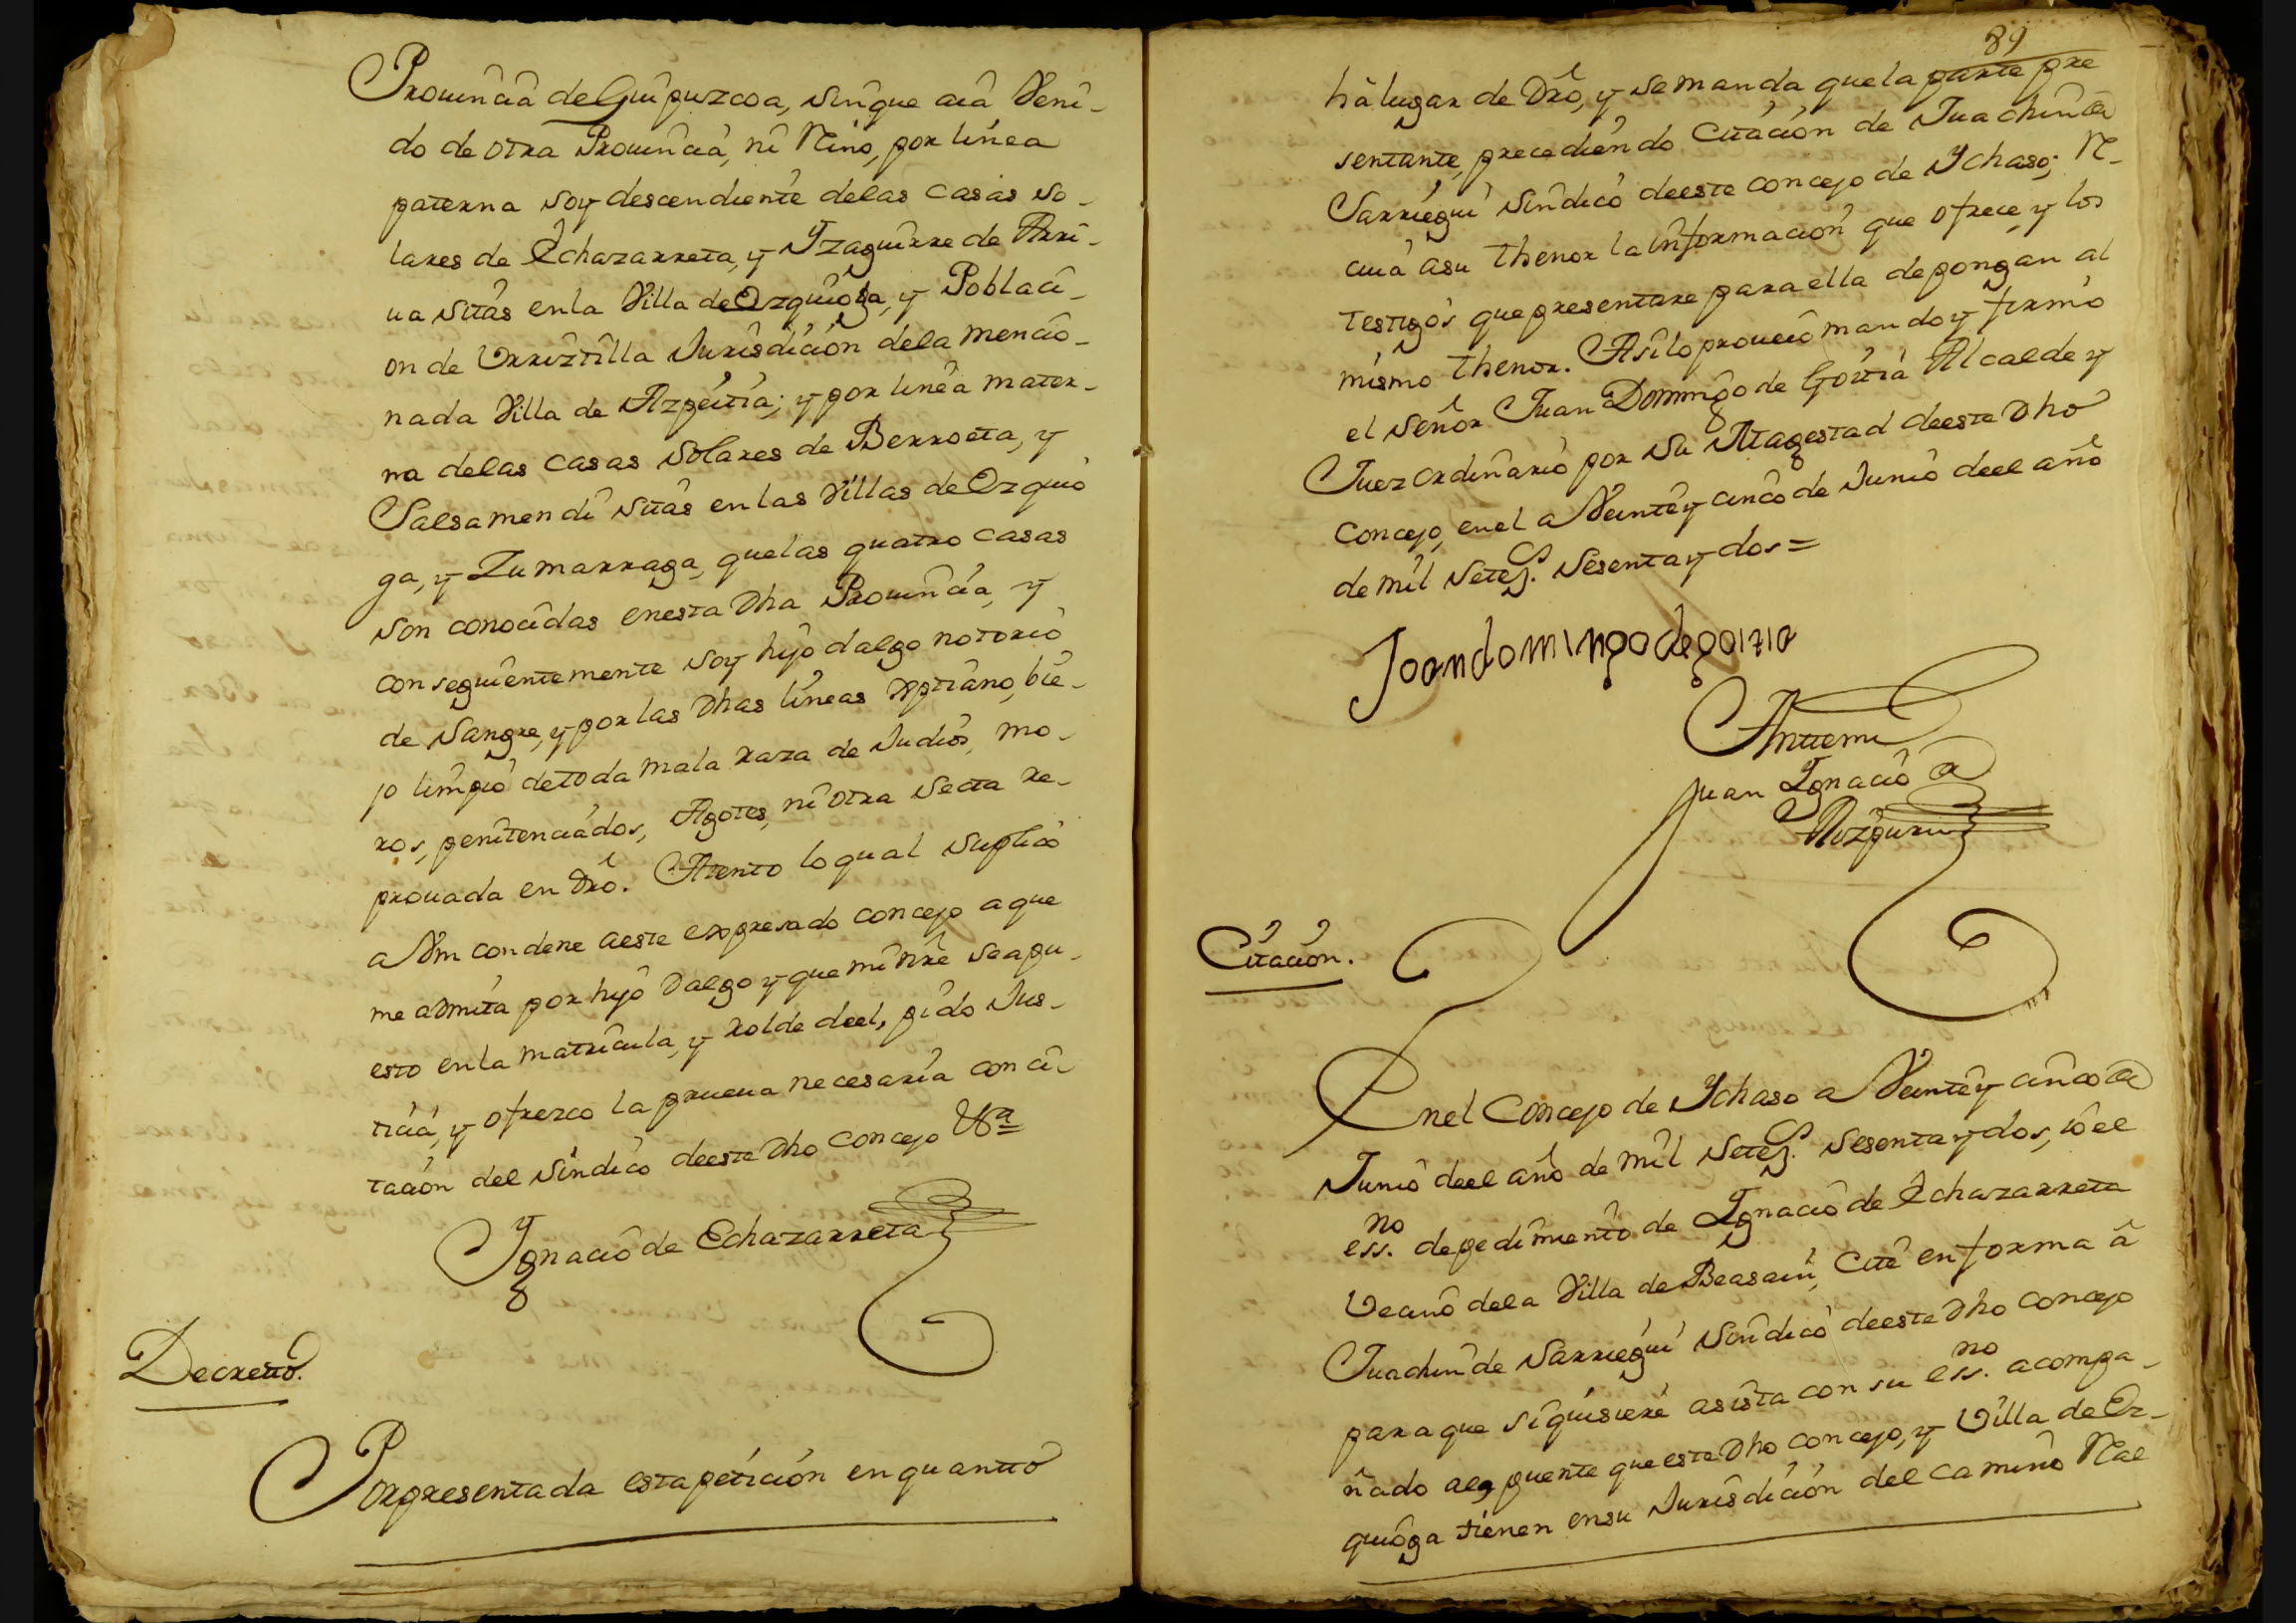 Prouincia de Guipuzcoa, sin que aia Veni-
do de otra Prouincia, ni Reino, por linea
paterna soy descendiente delas casas so-
lares de Echazarreta, y Yzaguirre de Arri-
ua sitas enla Villa de Ozquioga, y Poblaci-
on de Vrriztilla Jurisdicion dela mencio-
nada Villa de Azpeitia; y por linea mater-
na delas casas solares de Berroeta, y
Salsamendi sitas en las Villas de Ozquio
ga, y Zumarraga, quelas quatro casas
son conocidas enesta Dha Prouincia, y
conseguientemente soy hijo dalgo notorio
de Sangre, y por las Dhas lineas Xptiano, bie-
jo limpio detoda mala raza de Judios, mo-
ros, penitenciados, Agotes, ni otra Secta re-
prouada en Dro. Atento lo qual suplico
a Vm condene aeste expresado concejo aque
me admita por hijo Dalgo y que mi Nre seapu-
esto enla matricula, y rolde deel, pido Jus-
ticia, y ofrezco la prueua necesaria con ci-
tacion del Sindico deeste Dho concejo Vª=
Ygnacio de Echazarreta
Decretto.
Por presentada esta peticion en quantto
89
ha lugar de Dro, y se manda quela parte pre
sentante, precediendo Citacion de Juachin de
Sarriegui Sindico deeste concejo de Ychaso; R-
ciua asu thenor la informacion que ofrece, y los
testigos que presentare para ella depongan al
mismo thenor. Asilo proueio mando y firmo
el Señor Juan Domingo de Goitia Alcalde y
Juez ordinario por Su Magestad deeste Dho
Concejo, enel a Veinte y cinco de Junio deel año
de mil Setes. Sesenta y dos=
Joandomingodegoitia
Anttemi
Juan Ygnacio de
Citacion.
Enel Concejo de Ychaso a Veinte y cinco de
Junio deel año de mil Setes. Sesenta y dos, io el
ess.no depedimiento de Ygnacio de Echazarreta
Vecino dela Villa de Beasain, Cite en forma â
Juachin de Sarriegui Sindico deeste Dho concejo
para que siquisiere asista con su ess.no acompa-
ñado al puente que este Dho concejo, y Villa de Oz-
quioga tienen ensu Jurisdicion del camino Rael